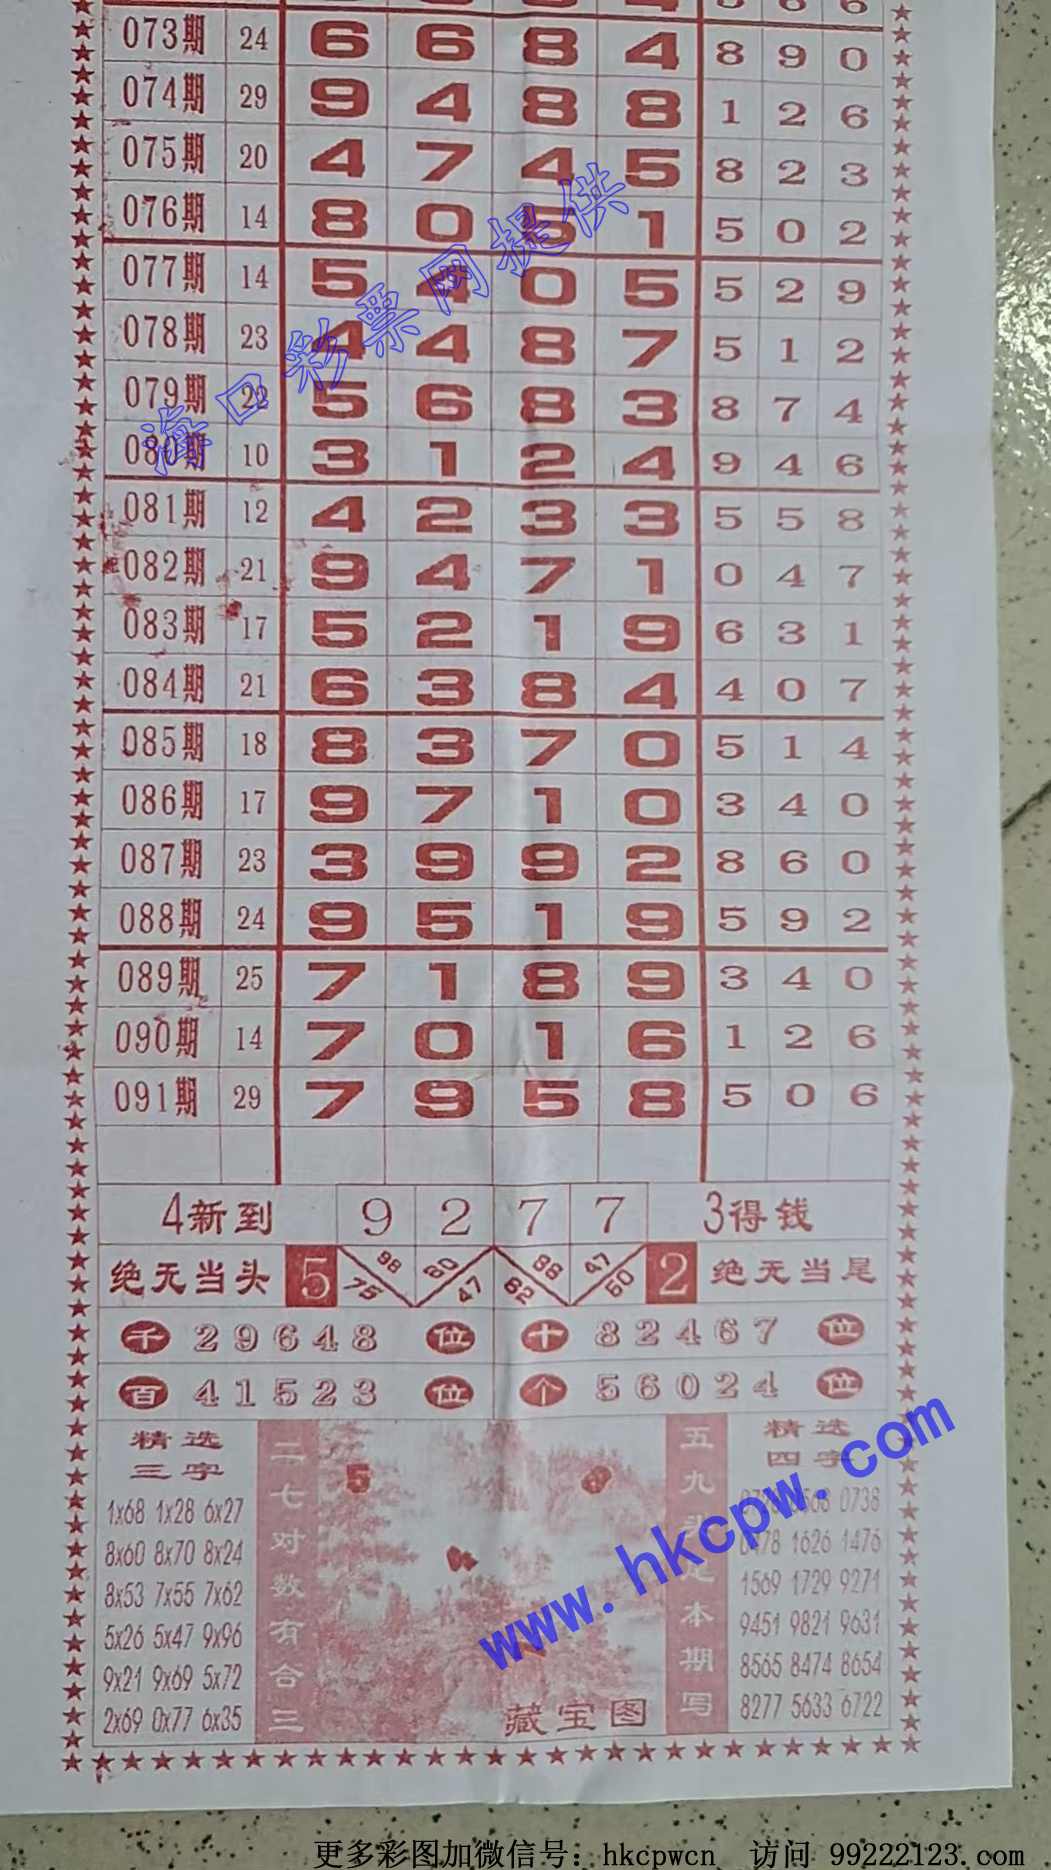 073期 24 6 6 8 4 8 9 0
074期 29 9 4 8 8 1 2 6
075期 20 4 7 4 5 8 2 3
076期 14 8 0 5 1 5 0 2
077期 14 5 4 0 5 5 2 9
078期 23 4 4 8 7 5 1 2
079期 22 5 6 8 3 8 7 4
080期 10 3 1 2 4 9 4 6
081期 12 4 2 3 3 5 5 8
082期 21 9 4 7 1 0 4 7
083期 17 5 2 1 9 6 3 1
084期 21 6 3 8 4 4 0 7
085期 18 8 3 7 0 5 1 4
086期 17 9 7 1 0 3 4 0
087期 23 3 9 9 2 8 6 0
088期 24 9 5 1 9 5 9 2
089期 25 7 1 8 9 3 4 0
090期 14 7 0 1 6 1 2 6
091期 29 7 9 5 8 5 0 6
海口彩票网提供
4新到 9 2 7 7 3得钱
绝无当头 5 98 75 60 47 38 62 47 50 2 绝无当尾
千 29648 位 十 82467 位
百 41523 位 个 56024 位
精选
三字
1x68 1x28 6x27
8x60 8x70 8x24
8x53 7x55 7x62
5x26 5x47 9x96
9x21 9x69 5x72
2x69 0x77 6x35
二七对数有合三
藏宝图
五九头尾本期写
精选
四字
0738
0478 1626 1476
1569 1729 9271
9451 9821 9631
8565 8474 8654
8277 5633 6722
www.hkcpw.com
更多彩图加微信号：hkcpwcn 访问 99222123.com